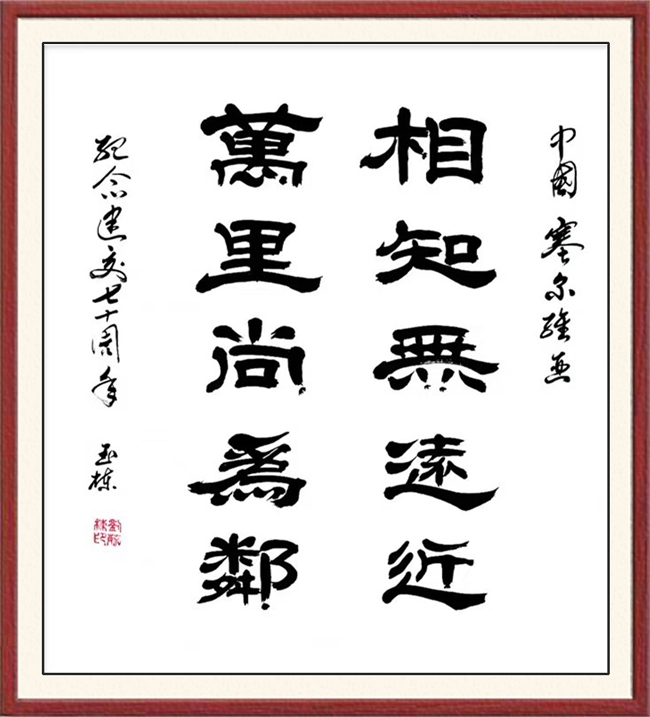 中國 塞尔维亚
相知無遠近
萬里尚爲鄰
纪念建交七十周年 玉栋